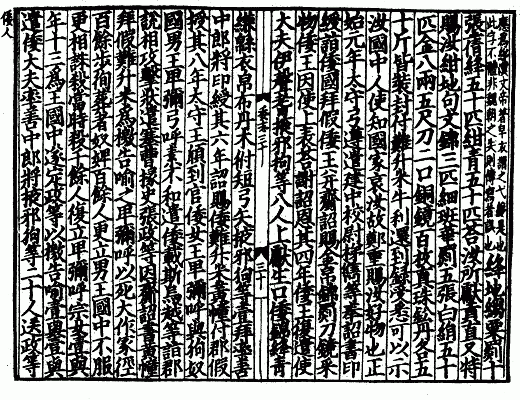 應爲綈漢文帝著皁衣謂之弋綈是也
此字不體非魏朝之失則傳寫者誤也
絳地縐粟罽十
張蒨絳五十匹紺青五十匹荅汝所獻貢直又特
賜汝紺地句文錦三匹細班華罽五張白絹五十
匹金八兩五尺刀二口銅鏡百枚真珠鈆丹各五
十斤皆裝封付難升米牛利還到録受悉可以示
汝國中人使知國家哀汝故鄭重賜汝好物也正
始元年太守弓遵遣建中校尉梯儁等奉詔書印
綬詣倭國拜假倭王并齎詔賜金帛錦罽刀鏡采
物倭王因使上表荅謝詔恩其四年倭王復遣使
大夫伊聲耆掖邪狗等八人上獻生口倭錦絳青
三十
縑緜衣帛布丹木短弓矢掖邪狗等壹拜率善
中郎將印綬其六年詔賜倭難升米黃幢付郡假
授其八年太守王頎到官倭女王卑彌呼與狗奴
國男王卑彌弓呼素不和遣倭載斯烏越等詣郡
說相攻擊狀遣塞曹掾史張政等因齎詔書黃幢
拜假難升米爲檄告喻之卑彌呼以死大作冢徑
百餘步徇葬者奴婢百餘人更立男王國中不服
更相誅殺當時殺千餘人復立卑彌呼宗女壹與
年十三爲王國中遂定政等以檄告喻壹與壹與
遣倭大夫率善中郎將掖邪狗等二十人送政等
倭人